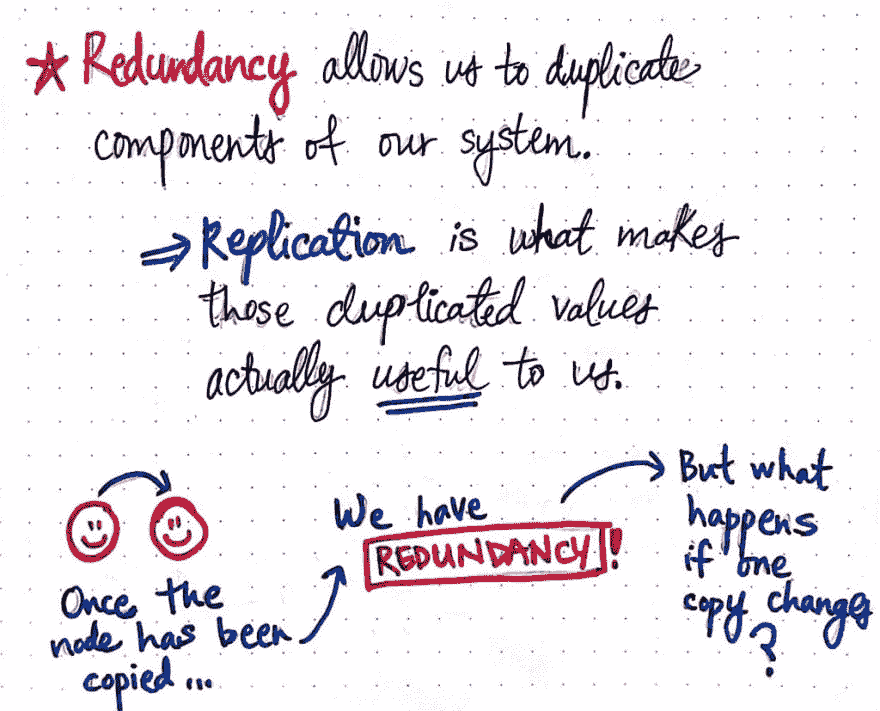 ★ Redundancy allows us to duplicate
components of our system.
⇒ Replication is what makes
those duplicated values
actually useful to us.
Once the
node has been
copied...
We have
REDUNDANCY!
But what
happens
if one
copy changes
?